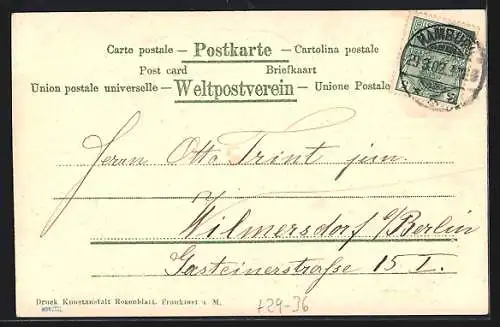 Carte postale — Postkarte — Cartolina postale
Post card Briefkaart
Union postale universelle — Weltpostverein — Unione Postale
HAMBURG
Herrn Otto Trint jun.
Wilmersdorf b/Berlin
Gasteinerstraße 15 I.
Druck Kunstanstalt Rosenblatt, Frankfurt a. M.
+29-36